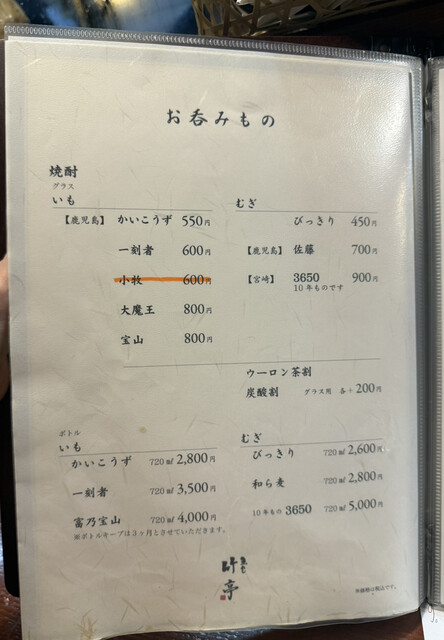 お呑みもの
焼酎
グラス
いも
【鹿児島】 かいこうず 550円
一刻者 600円
小牧 600円
大魔王 800円
宝山 800円
むぎ
びっきり 450円
【鹿児島】 佐藤 700円
【宮崎】 3650 900円
10年ものです
ウーロン茶割
炭酸割 グラス用 各々200円
ボトル
いも
かいこうず 720㎖ 2,800円
一刻者 720㎖ 3,500円
富乃宝山 720㎖ 4,000円
※ボトルキープは3ヶ月とさせていただきます。
むぎ
びっきり 720㎖ 2,600円
和ら麦 720㎖ 2,800円
10年もの 3650 720㎖ 5,000円
亭